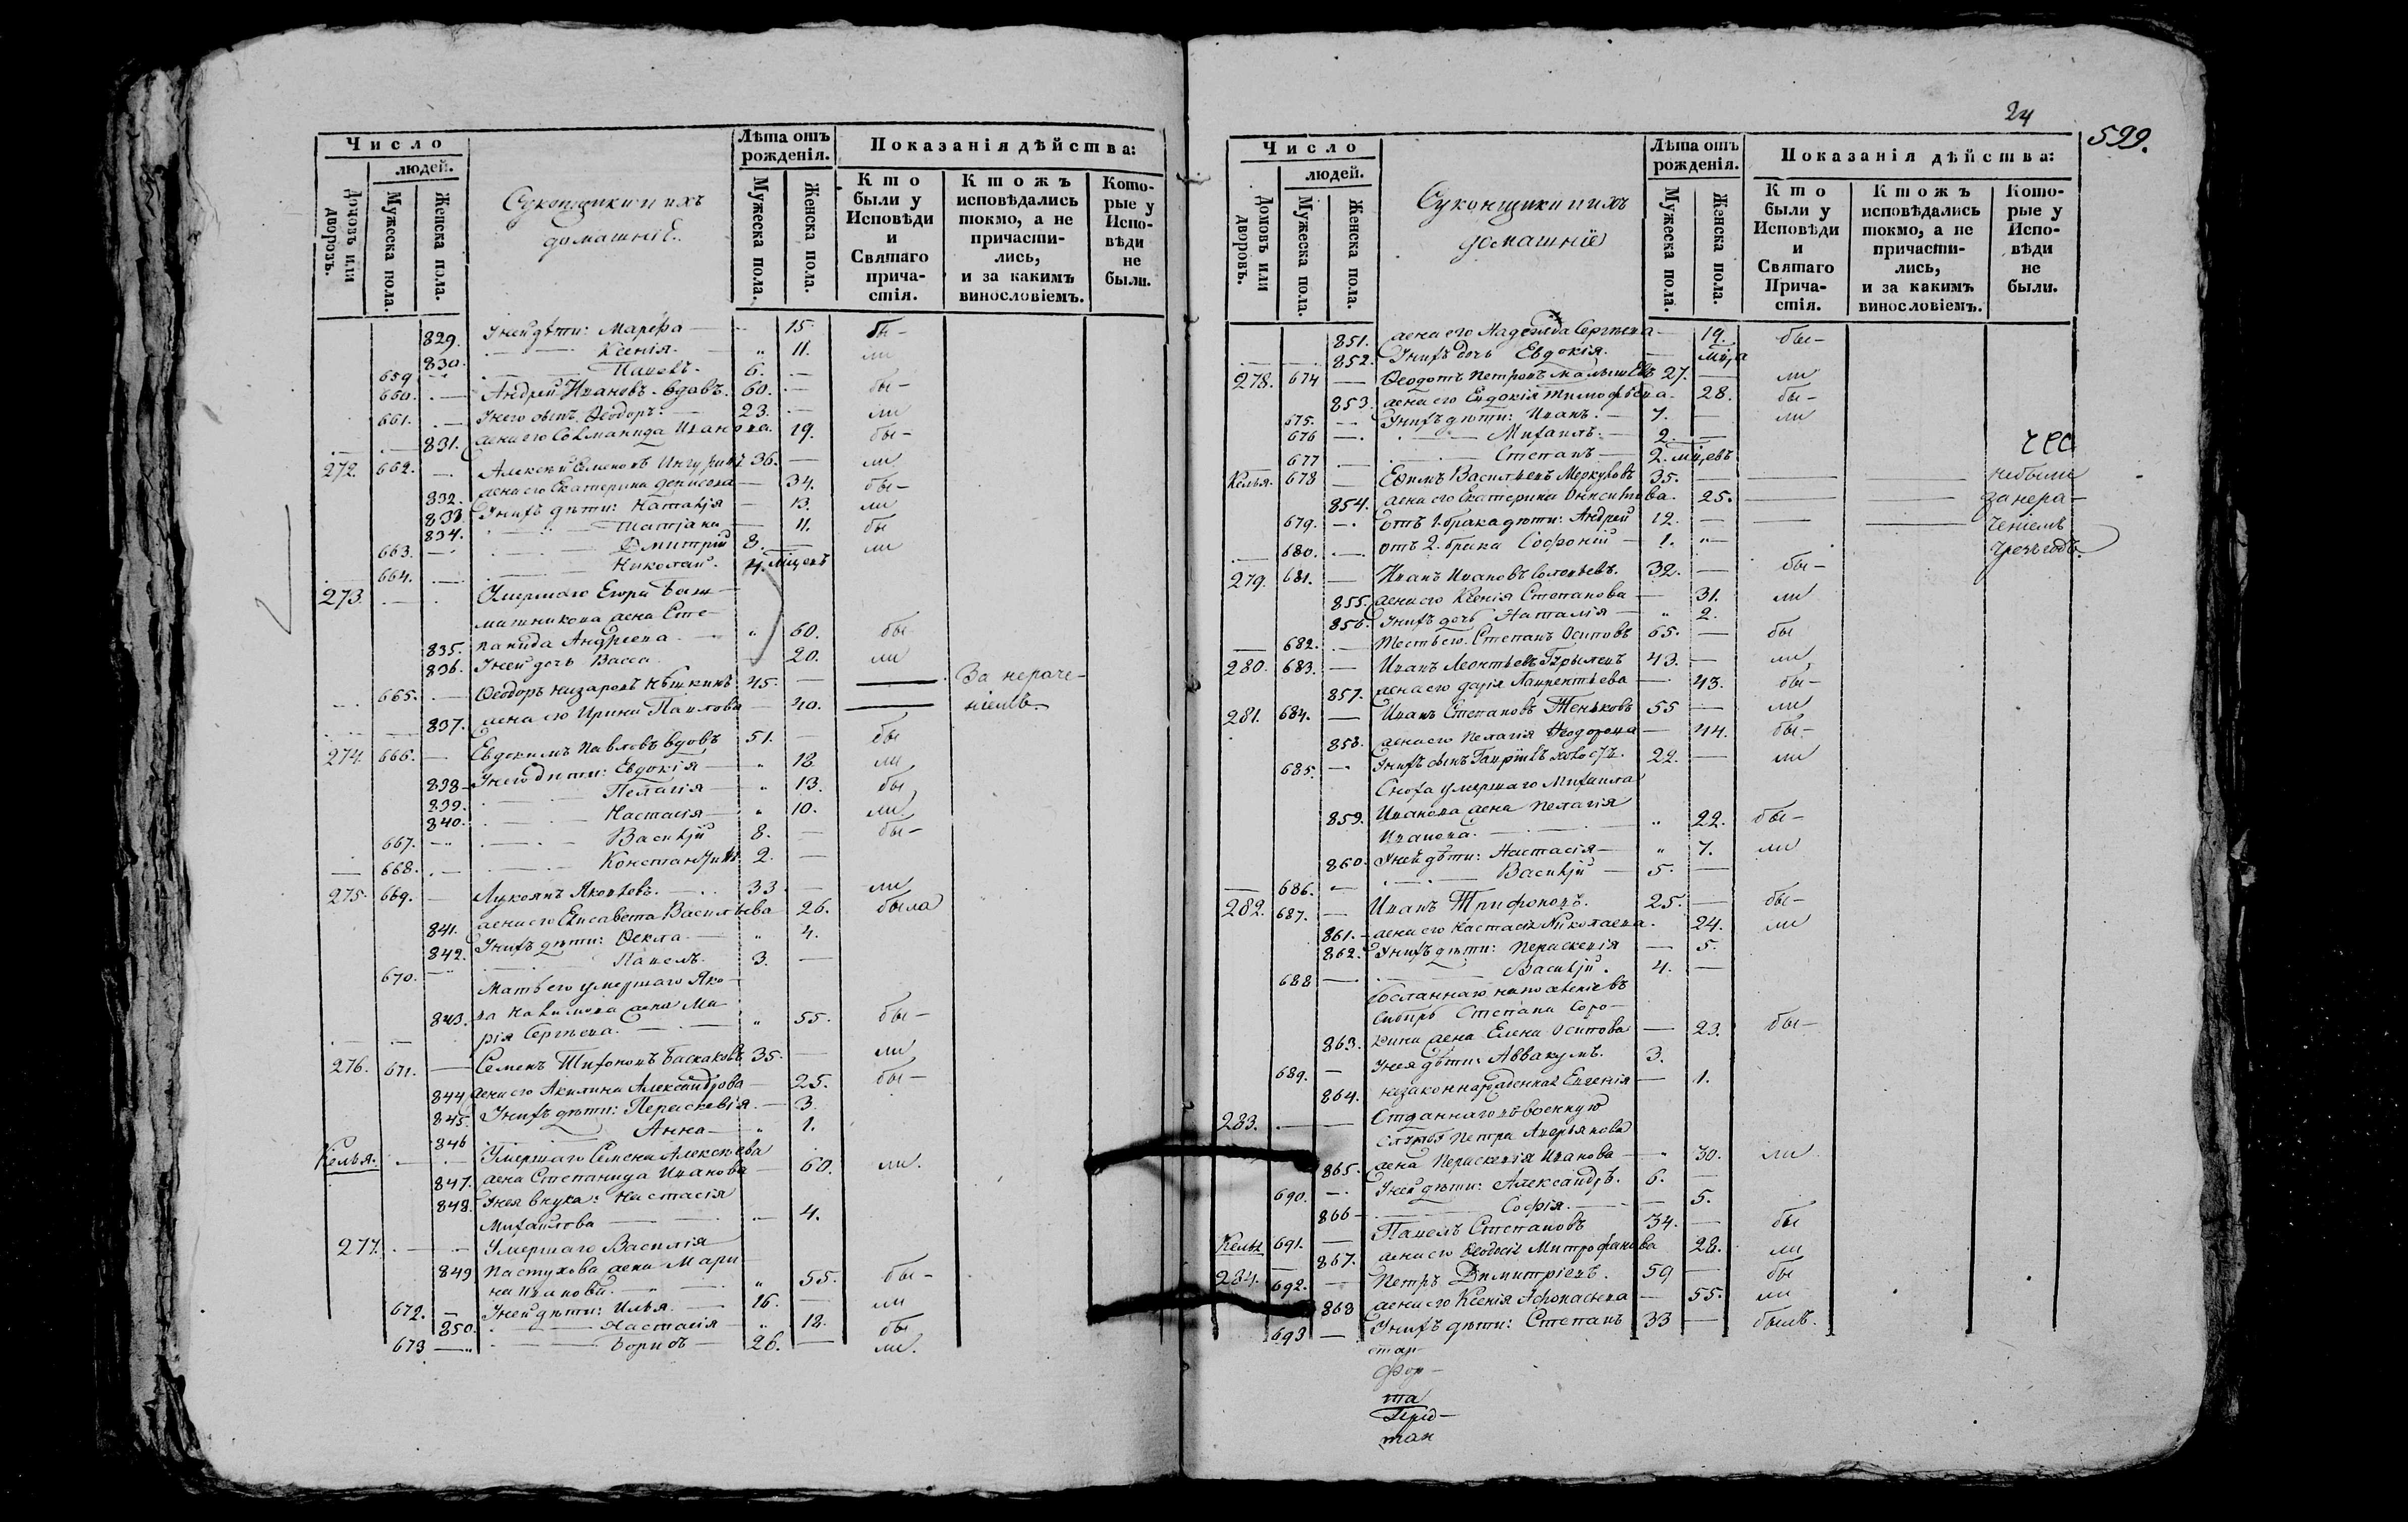 Число
людей.
Домовъ или дворовъ.
Мужеска пола.
Женска пола.
Суконщики и ихъ
домашніе.
Лѣта отъ
рожденія.
Мужеска пола.
Женска пола.
Показанія дѣйства:
Кто были у Исповѣди и Святаго причастія.
Ктожъ исповѣдались токмо, а не причастились, и за какимъ винословіемъ.
Которые у Исповѣди не были.
829. У ней дѣти: Марѳа — 15. бы-
830. Ксенія. " 11. ли
659 Павелъ. 6. —
660. Андрей Ивановъ вдовъ. 60. — бы-
661. У него сынъ Ѳеодоръ. 23. — ли
831. жена его Ивановa. 19. бы-
272. 662. Алексѣй Семеновъ 36. — ли
832. жена его Екатерина Денисова — 34. бы-
833. У нихъ дѣти: Наталія — 13. ли
834. Татіана — 11. бы
663. Димитрій 8. — ли
664. Николай. 4. мѣсяцевъ
273. Умершаго Егора Баш-
машникова жена Сте-
835. панида Андреева. " 60. бы-
836. У ней дочь Васса. 20. ли
665. Ѳеодоръ Назаровъ 45. — За нераче-
837. жена его Ирина Павлова — 40. ніемъ
274. 666. Евдокимъ Павловъ вдовъ 51. — бы
838 У него дѣти: Евдокія " 18 ли
839. Пелагія " 13. бы
840. Настасія " 10. ли
667. Василій 8. — бы-
668. Константинъ. 2. —
275. 669. Лукоянъ Яковлевъ. 33. — ли
841. жена его Елисавета Васильева 26. была
842. У нихъ дѣти: Ѳекла " 4.
670. Павелъ. 3. —
Мать его умершаго Яко-
843. ва жена Ма-
рія Сергѣева. " 55. бы-
276. 671. Семенъ Баскаковъ 35. — ли
844 жена его Акилина Александрова — 25. бы-
845. У нихъ дѣти: Параскевія. — 3.
846 Анна " 1.
Келья. Умершаго Семена Алексѣева
847. жена Степанида Иванова 60. ли.
848. У нея внука: Настасія
Михайлова — 4.
277. Умершаго Василія
849 Пастухова жена Мари-
на Иванова. " 55. бы-
672. У ней дѣти: Илья. 16. — ли
850. Настасія " 18. бы
673 Борисъ 26. — ли.
24
599.
Число
людей.
Домовъ или дворовъ.
Мужеска пола.
Женска пола.
Суконщики и ихъ
домашніе
Лѣта отъ
рожденія.
Мужеска пола.
Женска пола.
Показанія дѣйства:
Кто были у Исповѣди и Святаго Причастія.
Ктожъ исповѣдались токмо, а не причастились, и за какимъ винословіемъ.
Которые у Исповѣди не были.
851. жена его Надежда Сергѣева — 19. бы-
852. У нихъ дочь Евдокія. — мѣсяца
278. 674 — Ѳеодотъ Петровъ Малышевъ 27. — ли
853. жена его Евдокія Тимофѣева. 28. бы-
675. У нихъ дѣти: Иванъ. 7. — ли
676 Михаилъ. 2. —
677 Степанъ 2. мѣсяцевъ
Келья. 678 — Ефимъ Васильевъ Меркуловъ 35. — не были
854. жена его Екатерина Онисимова. 25. — за нера-
679. отъ 1. брака дѣти: Андрей 12. — ченіемъ
680. отъ 2. брака Софоній 1. чрезъ годъ
279. 681. — Иванъ Ивановъ Соловьевъ. 32. — бы-
855. жена его Ксенія Степанова — 31. ли
856. У нихъ дочь Наталія " 2.
682. Тесть его Степанъ Осиповъ 65. — бы
280. 683. — Иванъ Леонтьевъ 43. — ли
857. жена его Дарія Лаврентьева — 43. бы-
281. 684. — Иванъ Степановъ Теньковъ 55 — ли
858. жена его Пелагія Ѳеодорова 44. бы-
685. У нихъ сынъ Гаврілъ холостъ. 22. — ли
Сноха умершаго Михаила
859. Иванова жена Пелагія
Иванова. " 22. бы-
860. У ней дѣти: Настасія " 7. ли
686. Василій 5. —
282. 687. — Иванъ Трифоновъ. 25. — бы-
861. жена его Настасія Николаева. 24. ли
862. У нихъ дѣти: Параскевія — 5.
688 Василій. 4. —
Сосланнаго на поселеніе въ
Сибирь Степана Соро-
863. кина жена Елена Осипова — 23. бы-
689. — У нея дѣти: Аввакумъ. 3.
864. незаконнорожденная Евгенія — 1.
283. Отданнаго въ военную
службу Петра Аверьянова
865. жена Параскевія Иванова " 30. ли
690. У ней дѣти: Александръ. 6. —
866 Софія. 5.
Келья 691. — Павелъ Степановъ 34. — бы
867. жена его Ѳеодосія Митрофанова 28. ли
284. 692. — Петръ Димитріевъ. 59 — бы
868 жена его Ксенія Афонасьева — 55. ли
693 — У нихъ дѣти: Степанъ 33 — былъ.